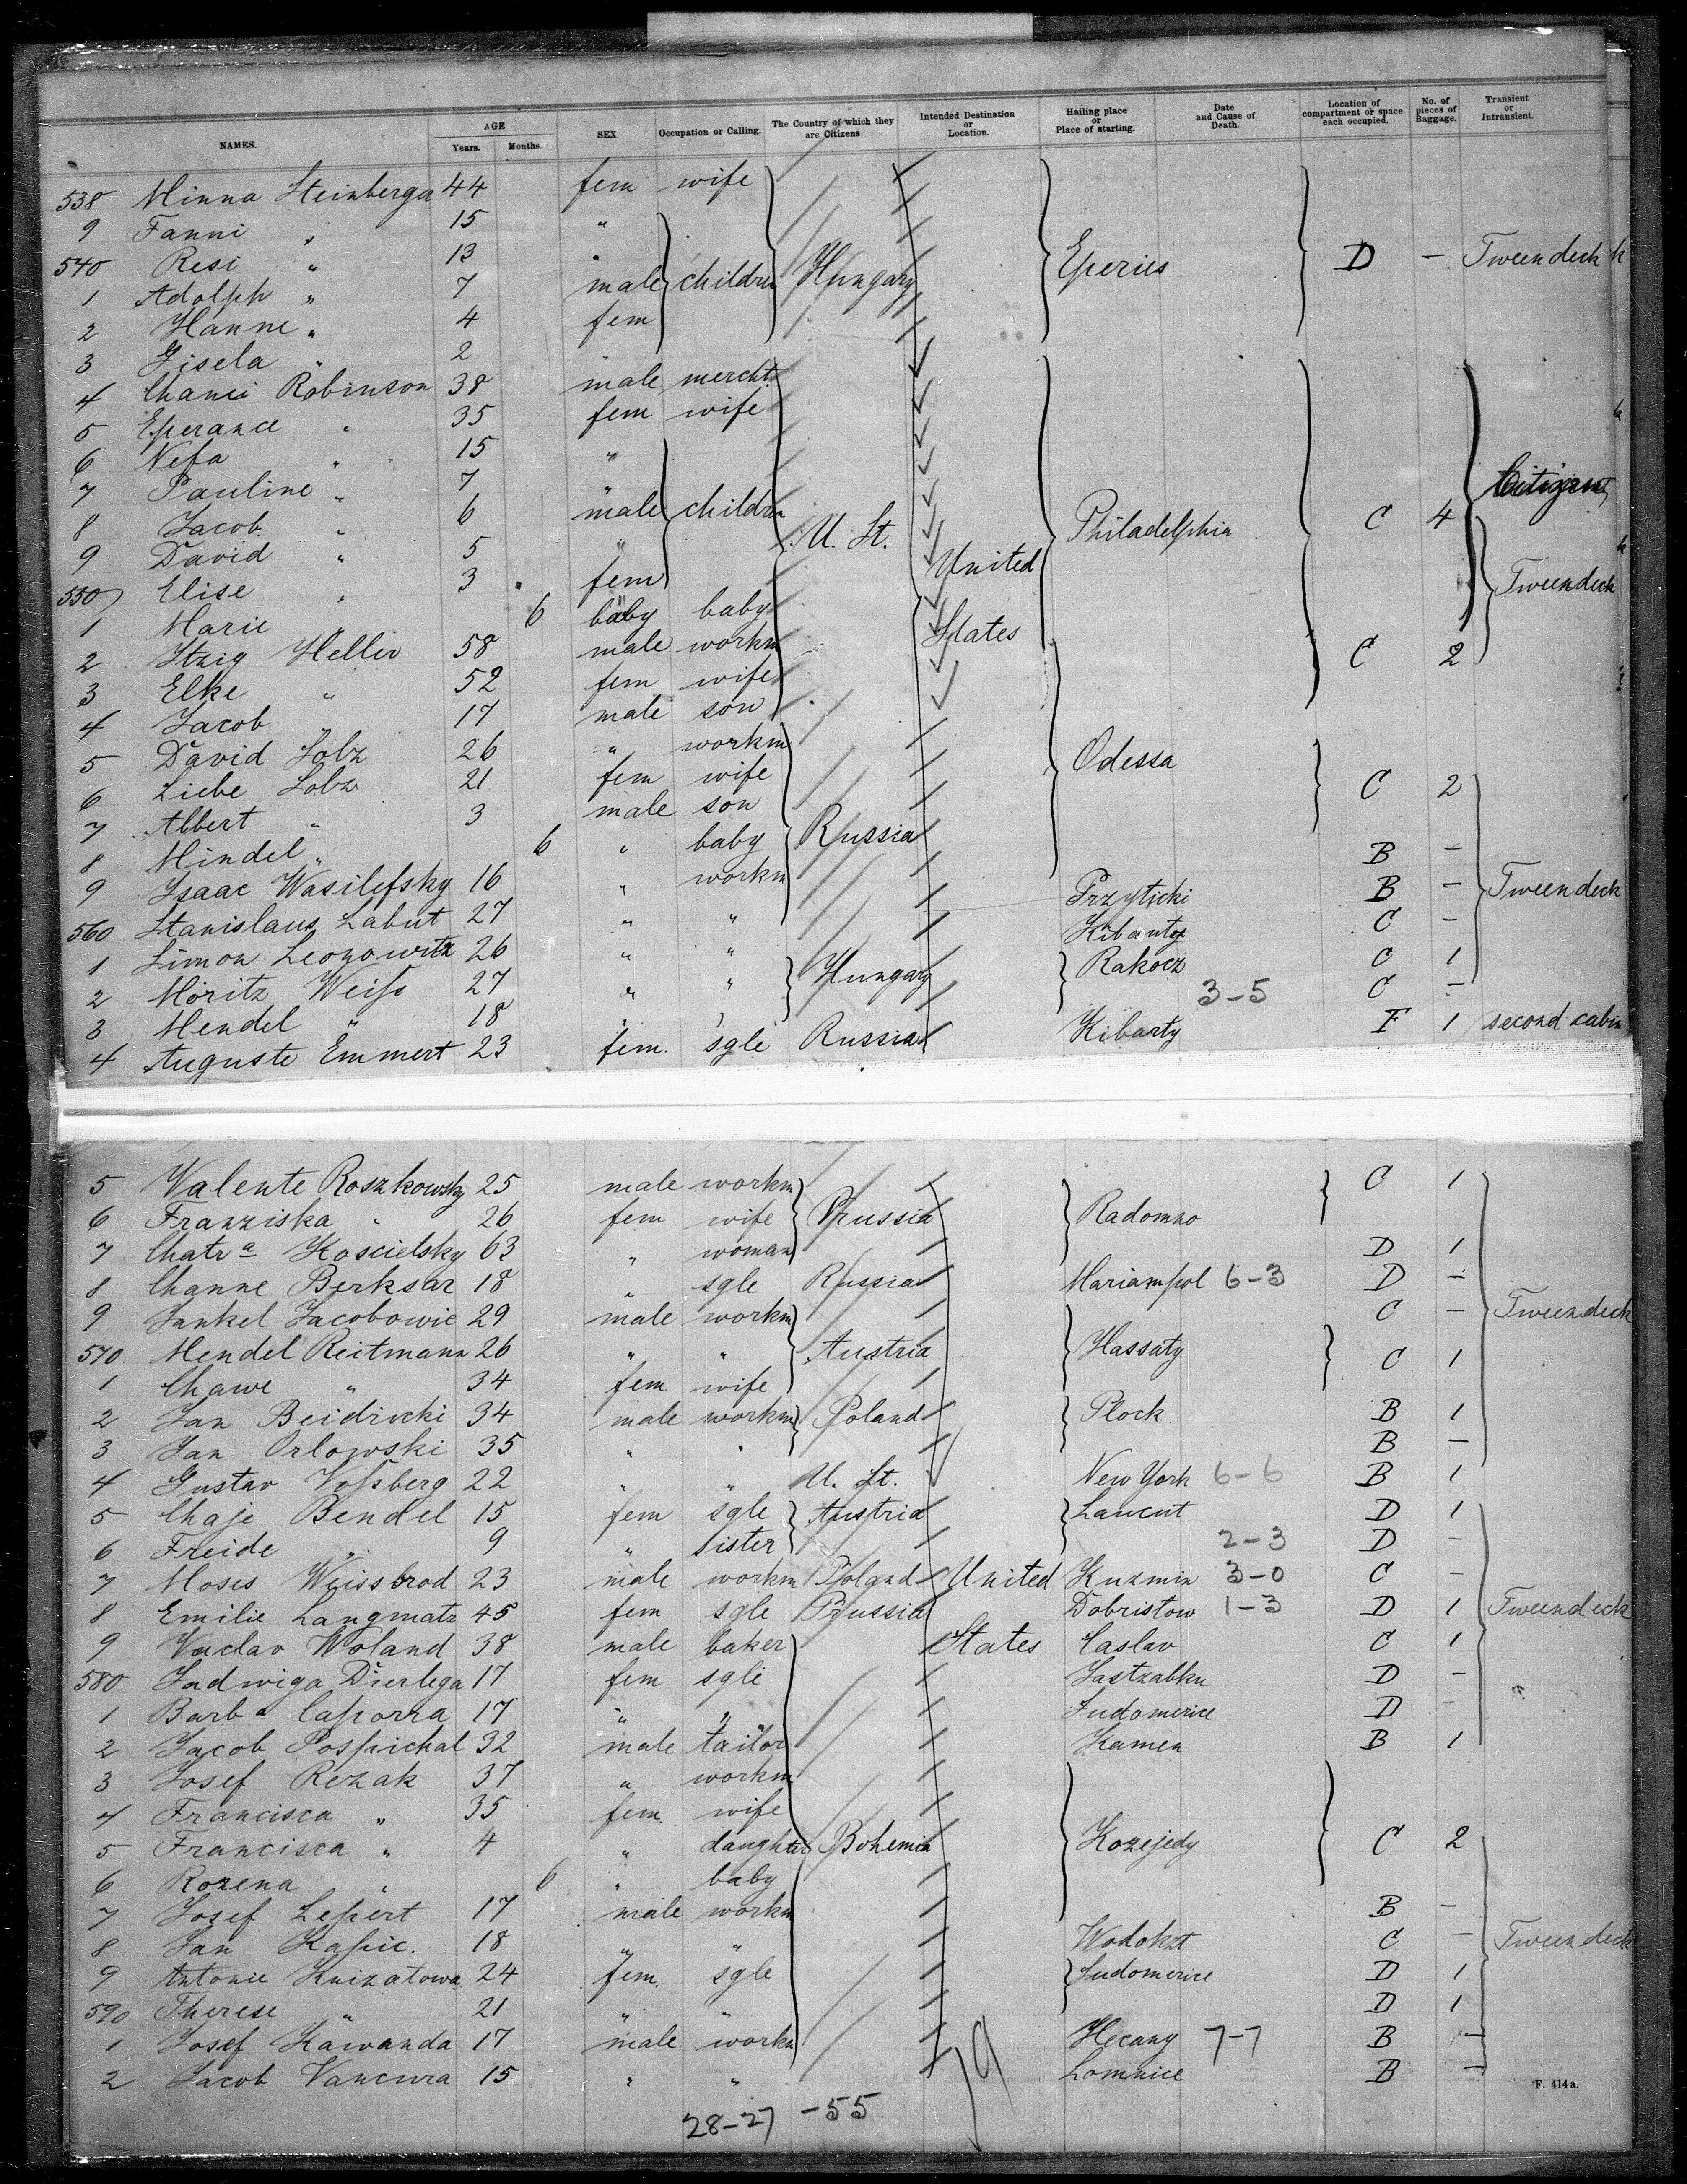 NAMES. AGE Years. Months. SEX Occupation or Calling. The Country of which they are Citizens Intended Destination or Location. Hailing place or Place of starting. Date and Cause of Death. Location of compartment or space each occupied. No. of pieces of Baggage. Transient or Intransient.
538 Minna Steinberger 44 fem wife
9 Fanni " 15 "
540 Resi " 13 " Hungary Eperies D - Tweendeck
1 Adolph " 7 male children
2 Hanne " 4 fem
3 Gisela " 2 "
4 Robinson 38 male mercht.
5 Eperance " 35 fem wife
6 Nefa " 15 "
7 Pauline " 7 "
8 Jacob " 6 male children U. St. Philadelphia C 4 Citizens
9 David " 5 " United
550 Elise " 3 fem Tweendeck
1 Marie " 6 baby baby States
2 Itzig Heller 58 male workm C 2
3 Elke " 52 fem wife
4 Jacob " 17 male son
5 David Solz 26 " workm Odessa
6 Liebe Solz 21 fem wife C 2
7 Albert " 3 male son Russia
8 Mindel " 6 " baby B -
9 Isaac Wasilefsky 16 " workm Przyticki B - Tweendeck
560 Stanislaus Labut 27 " " C -
1 Simon Leozowitz 26 " " Rakocz C 1
2 Moritz Weifs 27 " " Hungary 3-5 C -
3 Mendel " 18 " "
4 Auguste Emmert 23 fem. sgle Russia Kibarty F 1 second cabin
5 Valente Roszkowsky 25 male workm C 1
6 Franziska " 26 fem wife Prussia Radomno
7 Chatra Koscielsky 63 " woman D 1
8 Channe Berksar 18 " sgle Russia Mariampol 6-3 D -
9 Jankel Jacobowic 29 male workm C - Tweendeck
570 Mendel Reitmann 26 " " Austria Hassaty C 1
1 Chawe " 34 fem wife
2 Jan Beidrocki 34 male workm Poland Plock B 1
3 Jan Orlowski 35 " " B -
4 Gustav Vofsberg 22 " " U. St. New York 6-6 B 1
5 Chaje Bendel 15 fem sgle Austria Lancut D 1
6 Freide " 9 " sister 2-3 D -
7 Moses Weissbrod 23 male workm Poland United Kuzmin 3-0 C -
8 Emilie Langmatz 45 fem sgle Prussia Dobristow 1-3 D 1 Tweendeck
9 Vaclav Woland 38 male baker States Caslav C 1
580 Jadwiga Dierlega 17 fem sgle Jastzabku D -
1 Barba Caporra 17 " " Sudomerice D -
2 Jacob Pospichal 32 male tailor Kamen B 1
3 Josef Rezak 37 " workm
4 Francisca " 35 fem. wife
5 Francisca " 4 " daughter Bohemia Kozejedy C 2
6 Rozena " 6 " baby
7 Josef Lepert 17 male workm B -
8 Jan Kapic. 18 " " Wodokzt C - Tweendeck
9 Antonie Knizatowa 24 fem. sgle Sudomerice D 1
590 Therese " 21 " " D 1
1 Josef Kawanda 17 male workm Hecany 7-7 B -
2 Jacob Vancura 15 " " Lomnice B -
F. 414a.
28-27 -55
19